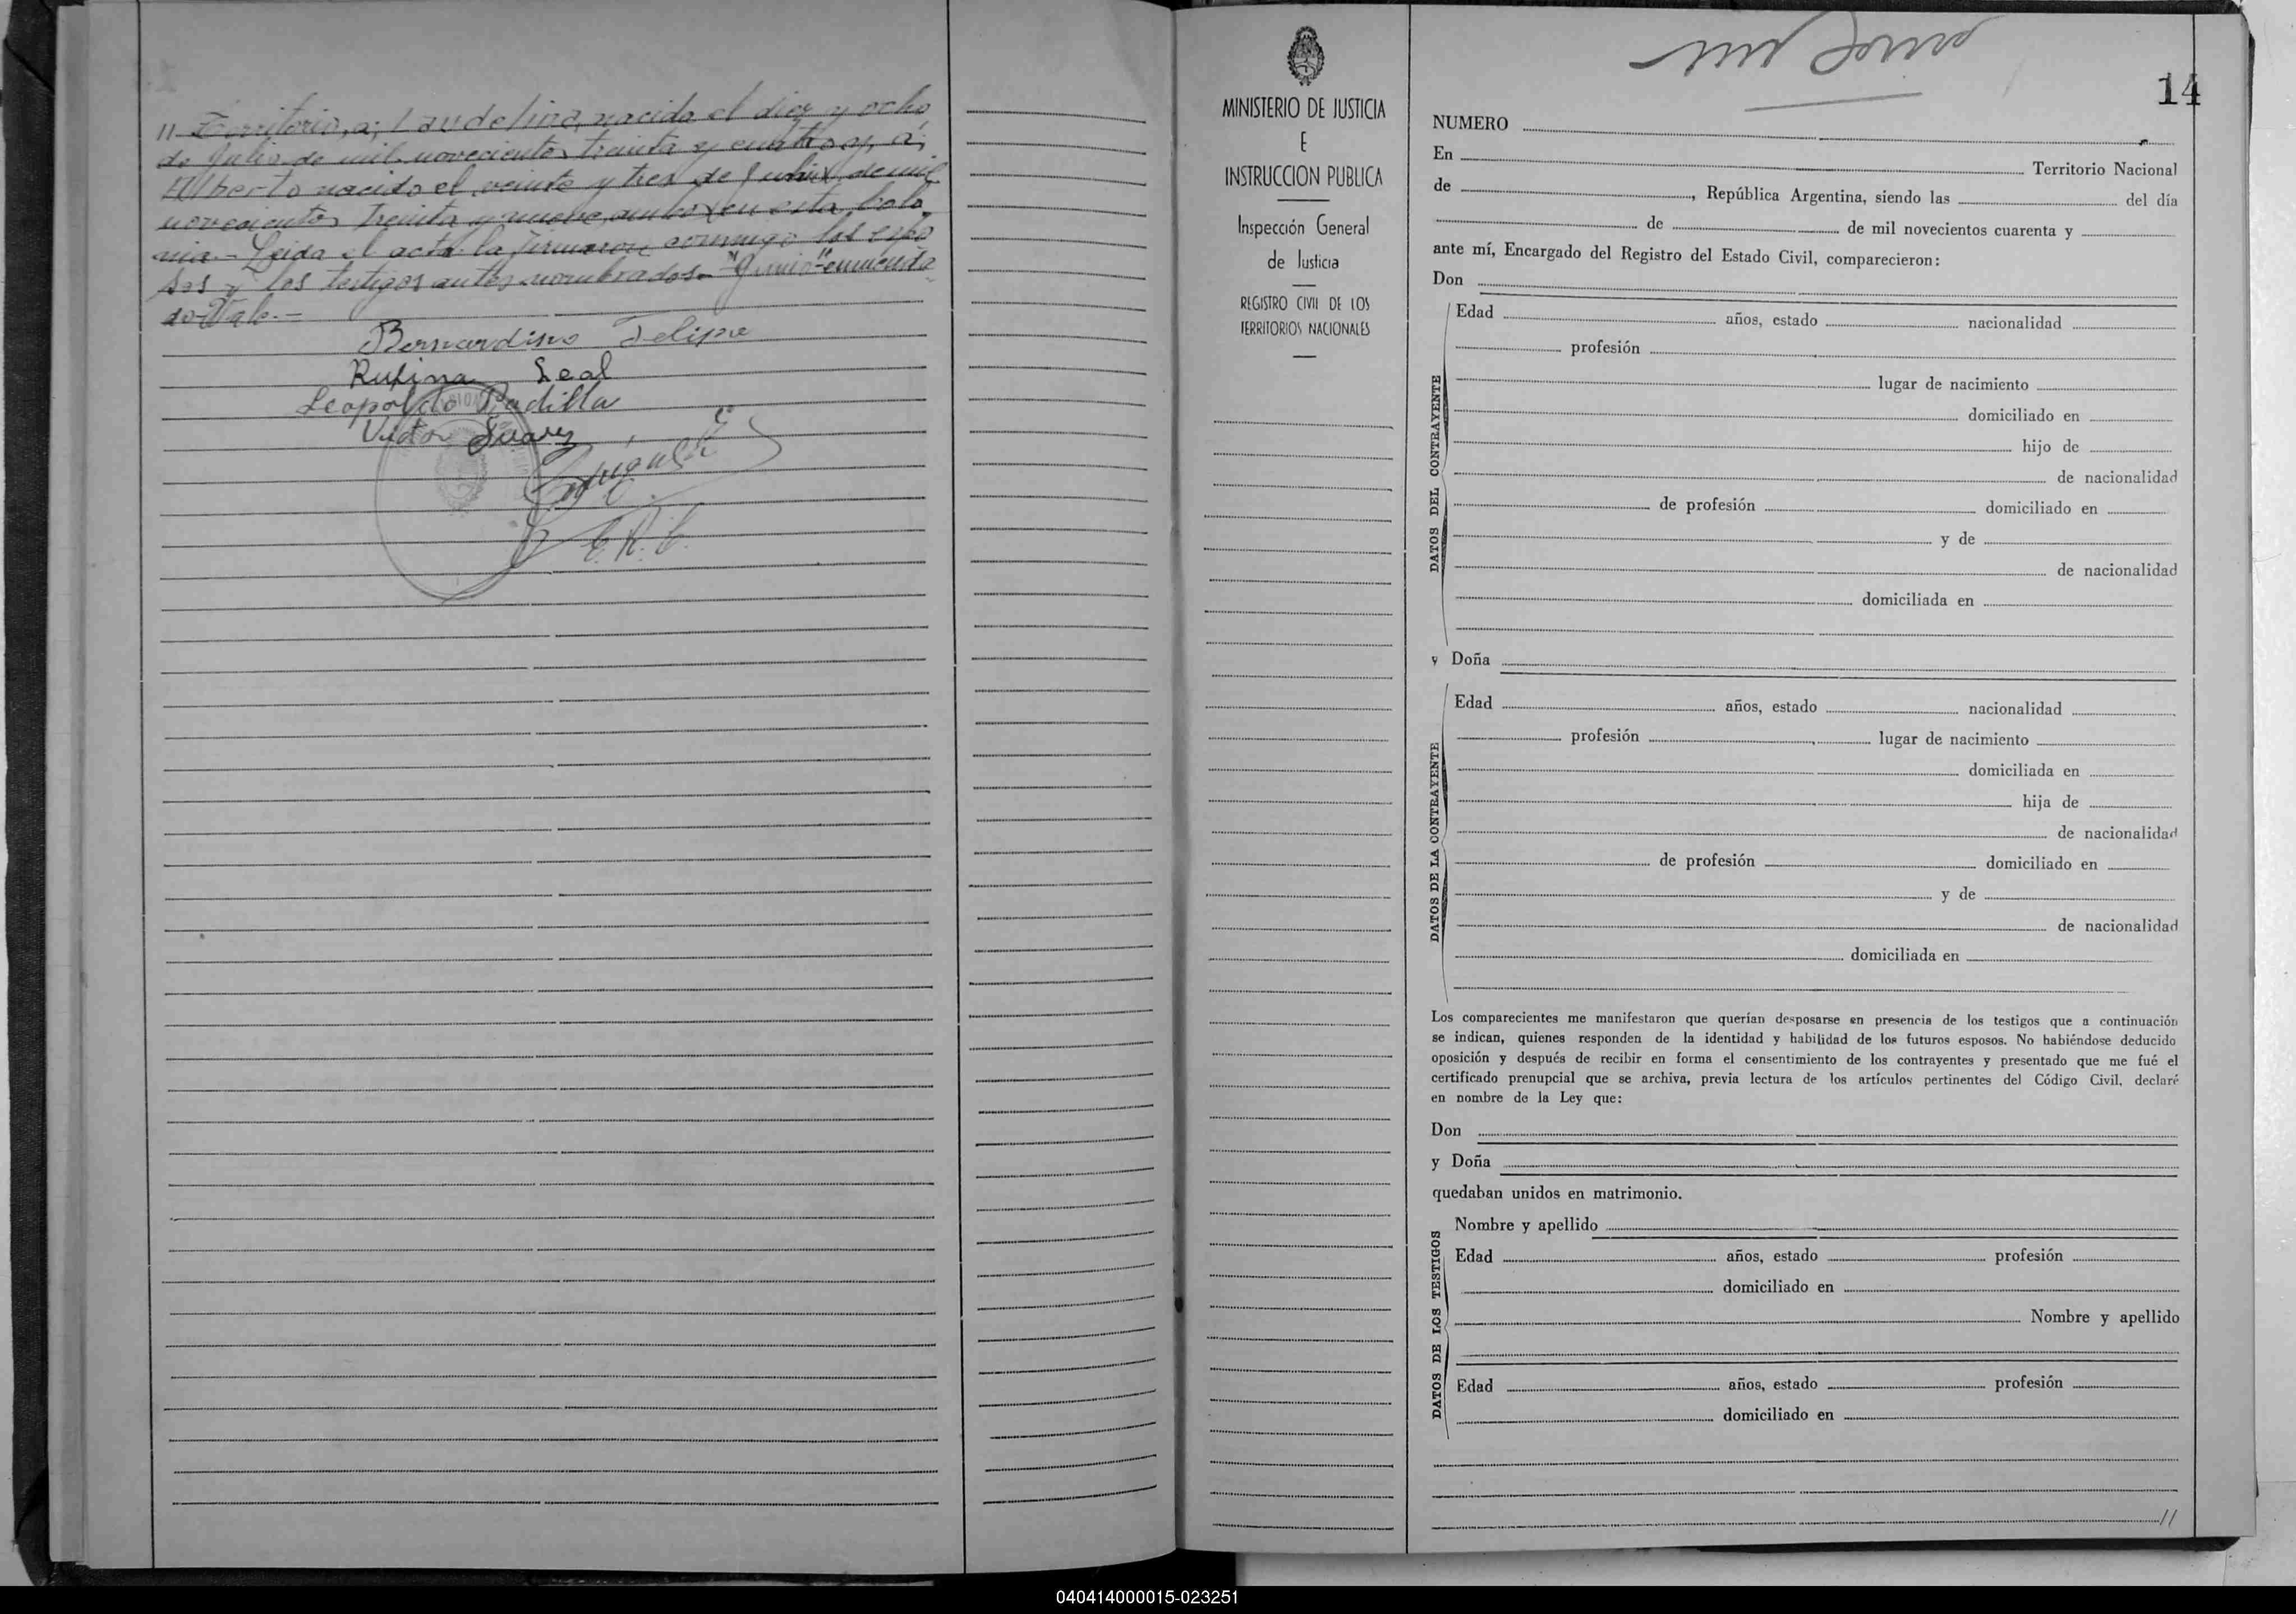 // Territorio, a; Laudelina, nacida el diez y ocho
de Julio de mil novecientos treinta y cuatro y, a;
Alberto nacido el veinte y tres de Junio de mil
novecientos treinta y nueve, ambos en esta Colo
nia.- Leida el acta la firmaron conmigo los espo
sos y los testigos antes nombrados.- "Junio" enmenda
do-Vale.-
Bernardino Felipe
Rufina Leal
Leopoldo Padilla
Victor Suarez
E. R. C.
MINISTERIO DE JUSTICIA
E
INSTRUCCION PUBLICA
Inspección General
de Justicia
REGISTRO CIVIL DE LOS
TERRITORIOS NACIONALES
14
NUMERO
En Territorio Nacional
de , República Argentina, siendo las del día
de de mil novecientos cuarenta y
ante mí, Encargado del Registro del Estado Civil, comparecieron:
Don
DATOS DEL CONTRAYENTE
Edad años, estado nacionalidad
profesión
lugar de nacimiento
domiciliado en
hijo de
de nacionalidad
de profesión domiciliado en
y de
de nacionalidad
domiciliada en
y Doña
DATOS DE LA CONTRAYENTE
Edad años, estado nacionalidad
profesión lugar de nacimiento
domiciliada en
hija de
de nacionalidad
de profesión domiciliado en
y de
de nacionalidad
domiciliada en
Los comparecientes me manifestaron que querían desposarse en presencia de los testigos que a continuación
se indican, quienes responden de la identidad y habilidad de los futuros esposos. No habiéndose deducido
oposición y después de recibir en forma el consentimiento de los contrayentes y presentado que me fué el
certificado prenupcial que se archiva, previa lectura de los artículos pertinentes del Código Civil, declaré
en nombre de la Ley que:
Don
y Doña
quedaban unidos en matrimonio.
DATOS DE LOS TESTIGOS
Nombre y apellido
Edad años, estado profesión
domiciliado en
Nombre y apellido
Edad años, estado profesión
domiciliado en
//
040414000015-023251